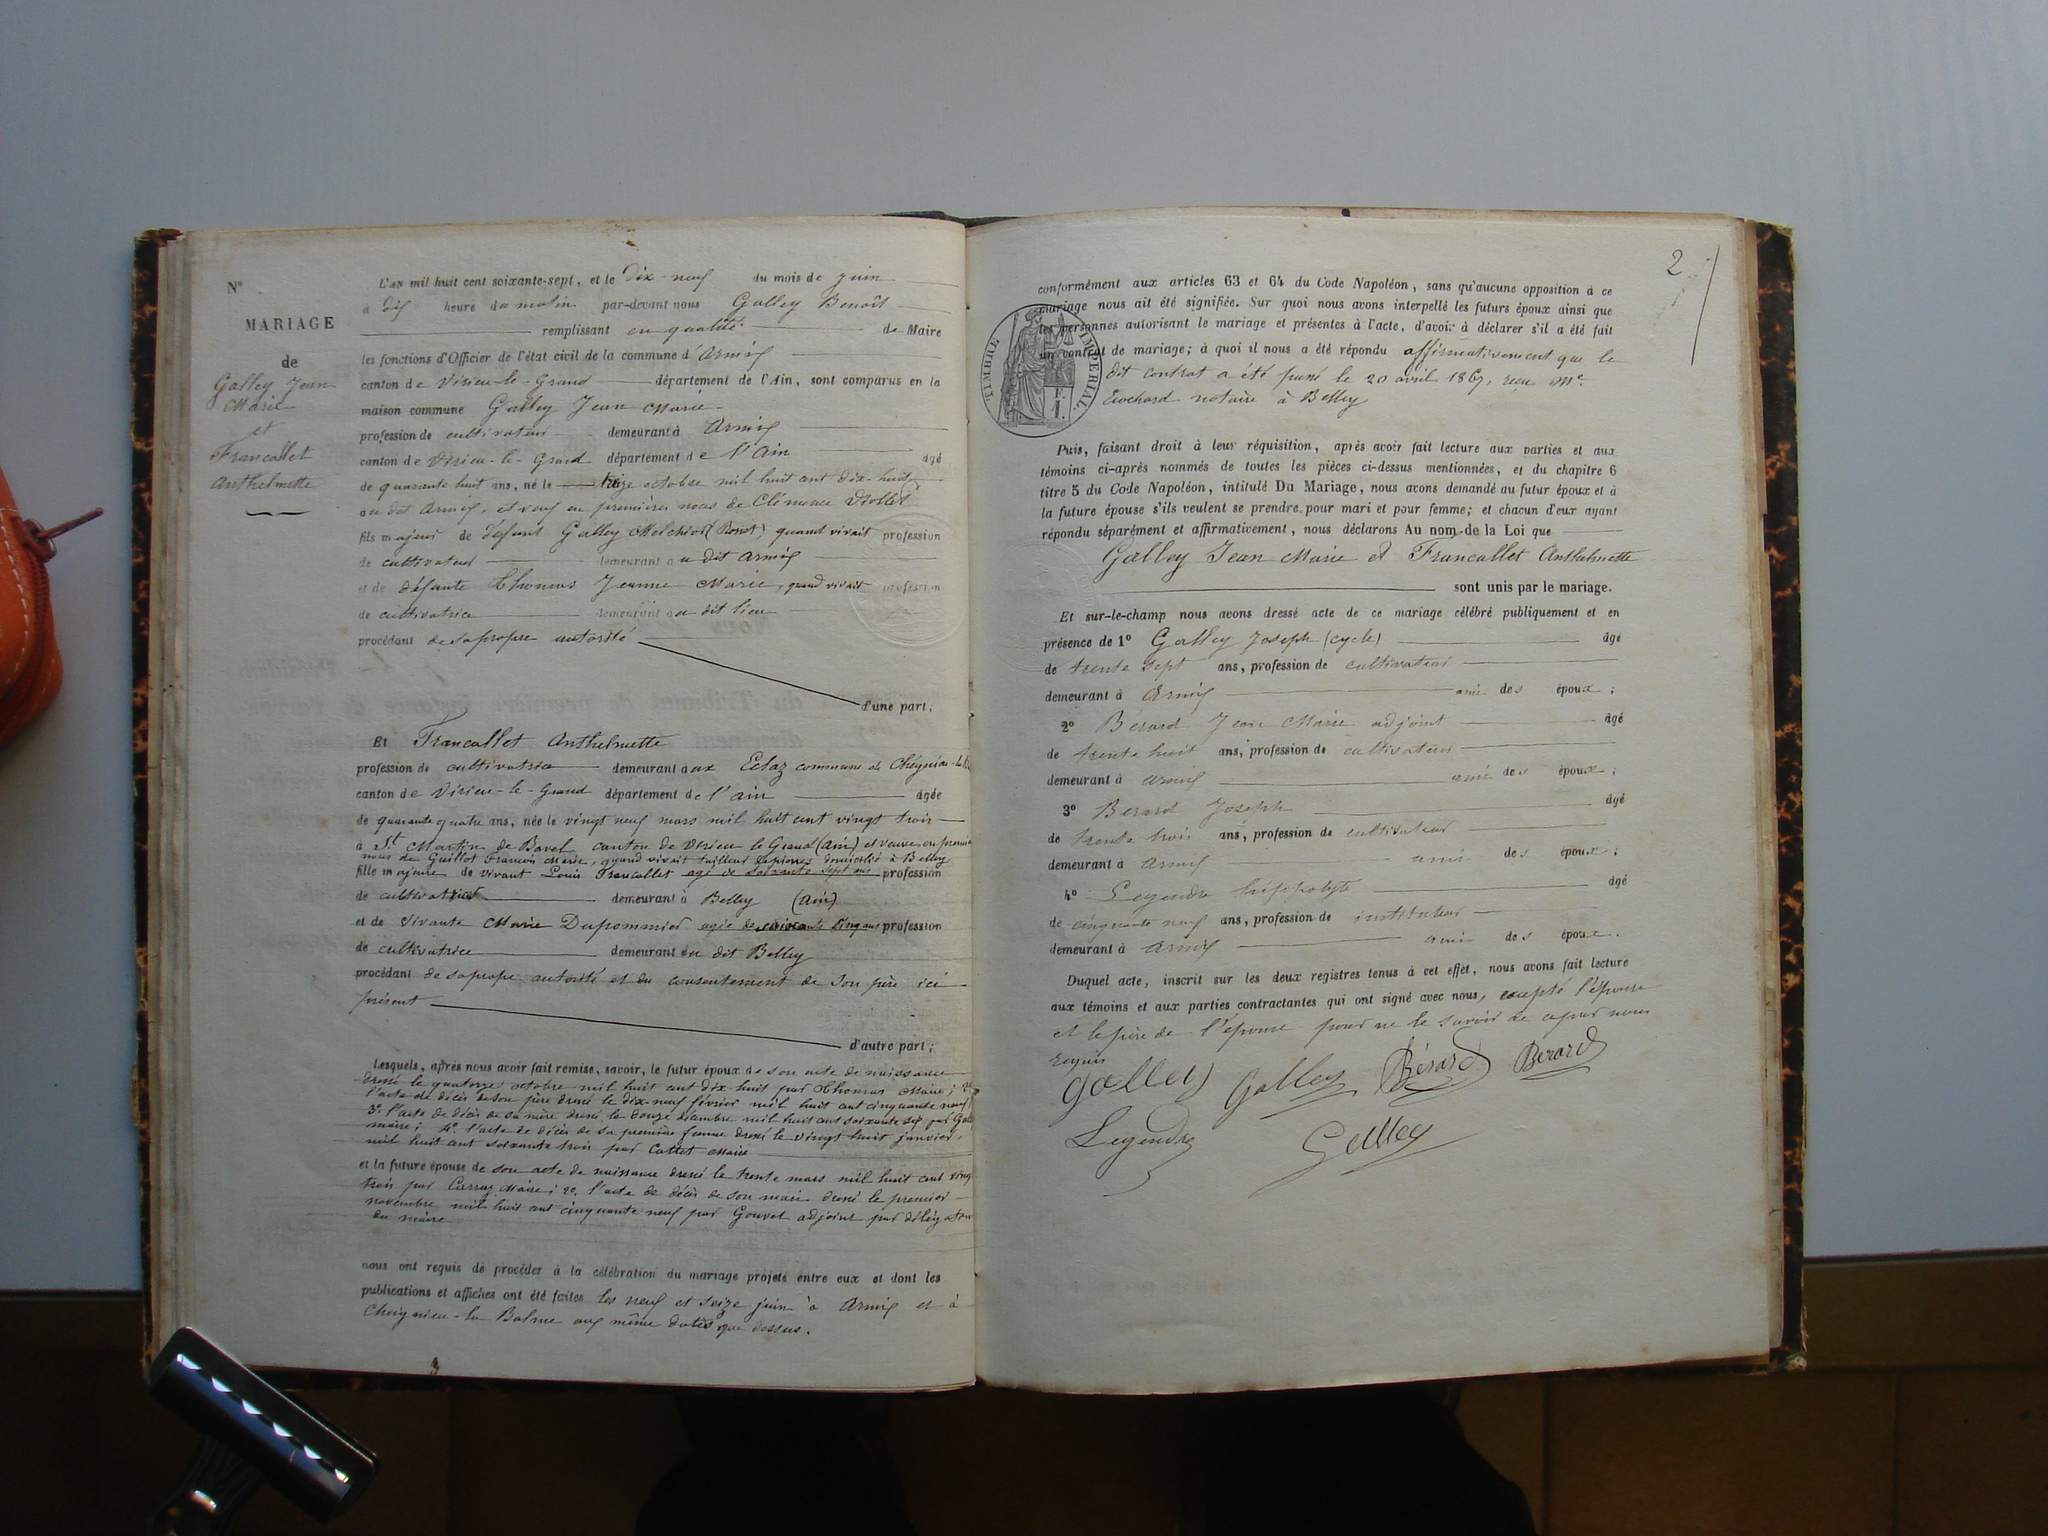 N°
MARIAGE
de
Galley Jean
Marie
et
Francallet
Anthelmette
L'AN mil huit cent soixante-sept, et le dix-neuf du mois de juin
à dix heure du matin par-devant nous Galley Benoît
remplissant en qualité de Maire
les fonctions d'Officier de l'état civil de la commune d'Armix
canton de Virieu-le-Grand département de l'Ain, sont comparus en la
maison commune Galley Jean Marie
profession de cultivateur demeurant à Armix
canton de Virieu-le-Grand département de l'Ain âgé
de quarante huit ans, né le octobre mil huit cent dix-huit
au dit Armix, et veuf en premières noces de Clémence
fils majeur de défunt Galley Melchior quand vivait profession
de cultivateur demeurant au dit Armix
et de défunte Thomas Jeanne Marie, quand vivait profession
de cultivatrice demeurant au dit lieu
procédant de sa propre autorité
d'une part;
Et Francallet Anthelmette
profession de cultivatrice demeurant aux Eclaz commune de
canton de Virieu-le-Grand département de l'Ain âgée
de quarante quatre ans, née le vingt neuf mars mil huit cent vingt trois
à St Martin de Bavel canton de Virieu le Grand (Ain) et veuve en
noces de Guillot François Marie, quand vivait tailleur de pierres domicilié à Belley
fille majeure de vivant Louis Francallet agé de soixante sept ans profession
de cultivateur demeurant à Belley (Ain)
et de vivante Marie Dupommier agée de soixante cinq ans profession
de cultivatrice demeurant au dit Belley
procédant de sa propre autorité et du consentement de son père ici
présent
d'autre part;
Lesquels, après nous avoir fait remise, savoir, le futur époux de son acte de naissance
dressé le quatorze octobre mil huit cent dix-huit par Thomas Maire; 2°
l'acte de décès de son père dressé le dix-neuf février mil huit cent cinquante neuf
3° l'acte de décès de sa mère dressé le douze décembre mil huit cent soixante six par
maire; 4° l'acte de décès de sa première femme dressé le vingt huit janvier
mil huit cent soixante trois par Cattet Maire
et la future épouse de son acte de naissance dressé le trente mars mil huit cent vingt
trois par Maire; 2° l'acte de décès de son mari dressé le premier
novembre mil huit cent cinquante neuf par Gouvet adjoint par délégation
du maire
nous ont requis de procéder à la célébration du mariage projeté entre eux et dont les
publications et affiches ont été faites les neuf et seize juin à Armix et à
Cheignieu-la Balme aux même dates que dessus.
2
conformément aux articles 63 et 64 du Code Napoléon, sans qu'aucune opposition à ce
mariage nous ait été signifiée. Sur quoi nous avons interpellé les futurs époux ainsi que
les personnes autorisant le mariage et présentes à l'acte, d'avoir à déclarer s'il a été fait
un contrat de mariage; à quoi il nous a été répondu affirmativement que le
dit contrat a été passé le 20 avril 1867, reçu Me
notaire à Belley
TIMBRE IMPÉRIAL
F.
1.
Puis, faisant droit à leur réquisition, après avoir fait lecture aux parties et aux
témoins ci-après nommés de toutes les pièces ci-dessus mentionnées, et du chapitre 6
titre 5 du Code Napoléon, intitulé Du Mariage, nous avons demandé au futur époux et à
la future épouse s'ils veulent se prendre pour mari et pour femme; et chacun d'eux ayant
répondu séparément et affirmativement, nous déclarons Au nom de la Loi que
Galley Jean Marie et Francallet Anthelmette
sont unis par le mariage.
Et sur-le-champ nous avons dressé acte de ce mariage célébré publiquement et en
présence de 1° Galley Joseph (cycle) âgé
de trente sept ans, profession de cultivateur
demeurant à Armix ami des époux;
2° Bérard Jean Marie adjoint âgé
de trente huit ans, profession de cultivateur
demeurant à Armix ami des époux;
3° Berard Joseph âgé
de trente trois ans, profession de cultivateur
demeurant à Armix ami des époux;
4° Legendre hippolyte âgé
de cinquante neuf ans, profession de instituteur
demeurant à Armix ami des époux.
Duquel acte, inscrit sur les deux registres tenus à cet effet, nous avons fait lecture
aux témoins et aux parties contractantes qui ont signé avec nous, excepté l'épouse
et le père de l'épouse pour ne le savoir de ce par nous
requis
Galley Galley Bérard Berard
Legendre Galley